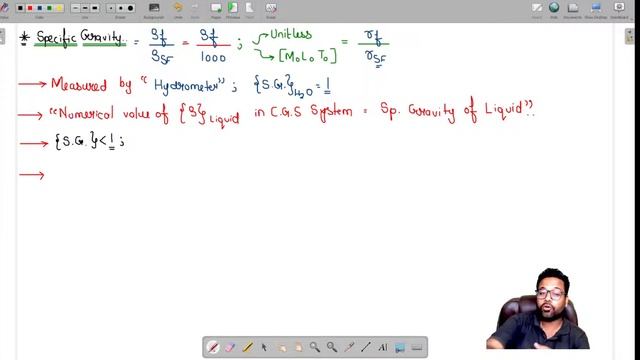 * Specific Gravity = ρf/ρSF = ρf/1000 ; Unitless = γf/γSF
[M⁰L⁰T⁰]
→ Measured by "Hydrometer" ; {S.G.}H₂O = 1
→ "Numerical value of {ρ}Liquid in C.G.S System = Sp. Gravity of Liquid"..
→ {S.G.} < 1 ;
→